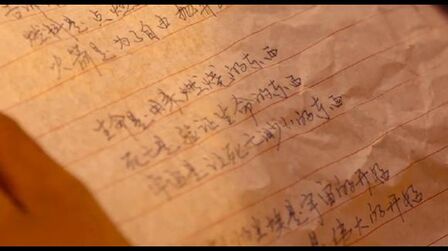 燃料是点燃
火箭是为了自由
生命是用来燃烧的东西
死亡是验证生命的东西
宇宙是让死亡渺小的东西
是宇宙的开始
是伟大的开始